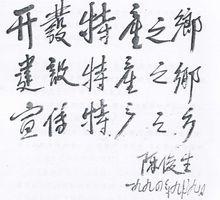 開發特產之鄉
建設特產之鄉
宣傳特产之乡
陈俊生
一九九〇年九月